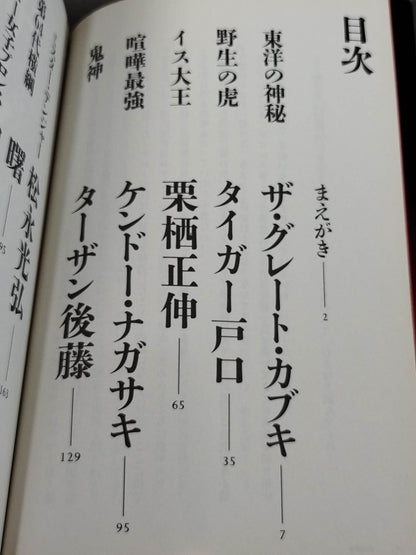 目次
まえがき――2
東洋の神秘 ザ・グレート・カブキ――7
野生の虎 タイガー戸口――35
イス大王 栗栖正伸――65
喧嘩最強 ケンドー・ナガサキ――95
鬼神 ターザン後藤――129
松永光弘――161
曙